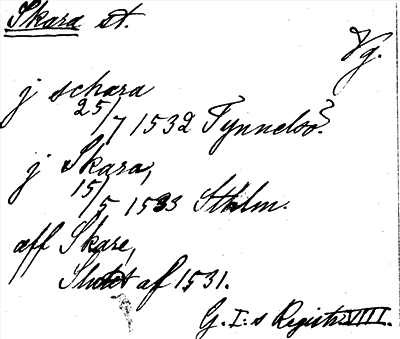 Skara st.
Vg.
j schara
25/7 1532 Tynnelsö?
j Skara,
15/5 1533 Sthlm.
aff Skare,
Slutet af 1531.
G. I:s Registr. VIII.